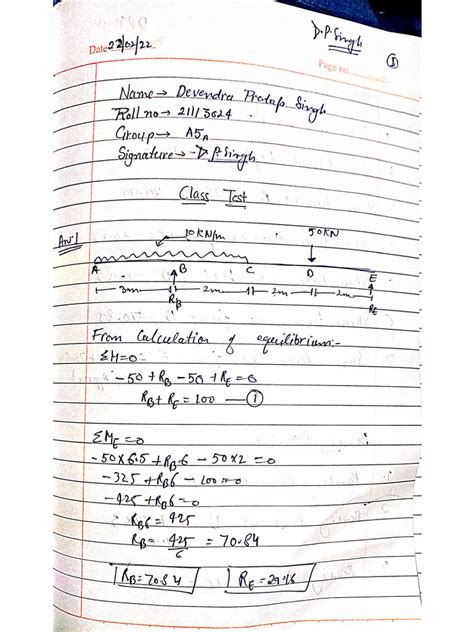 D.P.Singh
①
Date 22/02/22
Page no.
Name → Devendra Pratap Singh
Roll no → 21113024
Group → A5A
Signature → D.P.Singh
Class Test
Ans 1
10 KN/m 50KN
A B C D E
3m 2m 2m 2m
RB RE
From Calculation of equilibrium:-
ΣM=0:-
-50 + RB - 50 + RE = 0
RB + RE = 100 — ①
ΣME = 0
-50×6.5 + RB.6 - 50×2 = 0
-325 + RB6 - 100 = 0
-425 + RB6 = 0
RB6 = 425
RB = 425/6 = 70.84
RB = 70.84 RE = 29.16